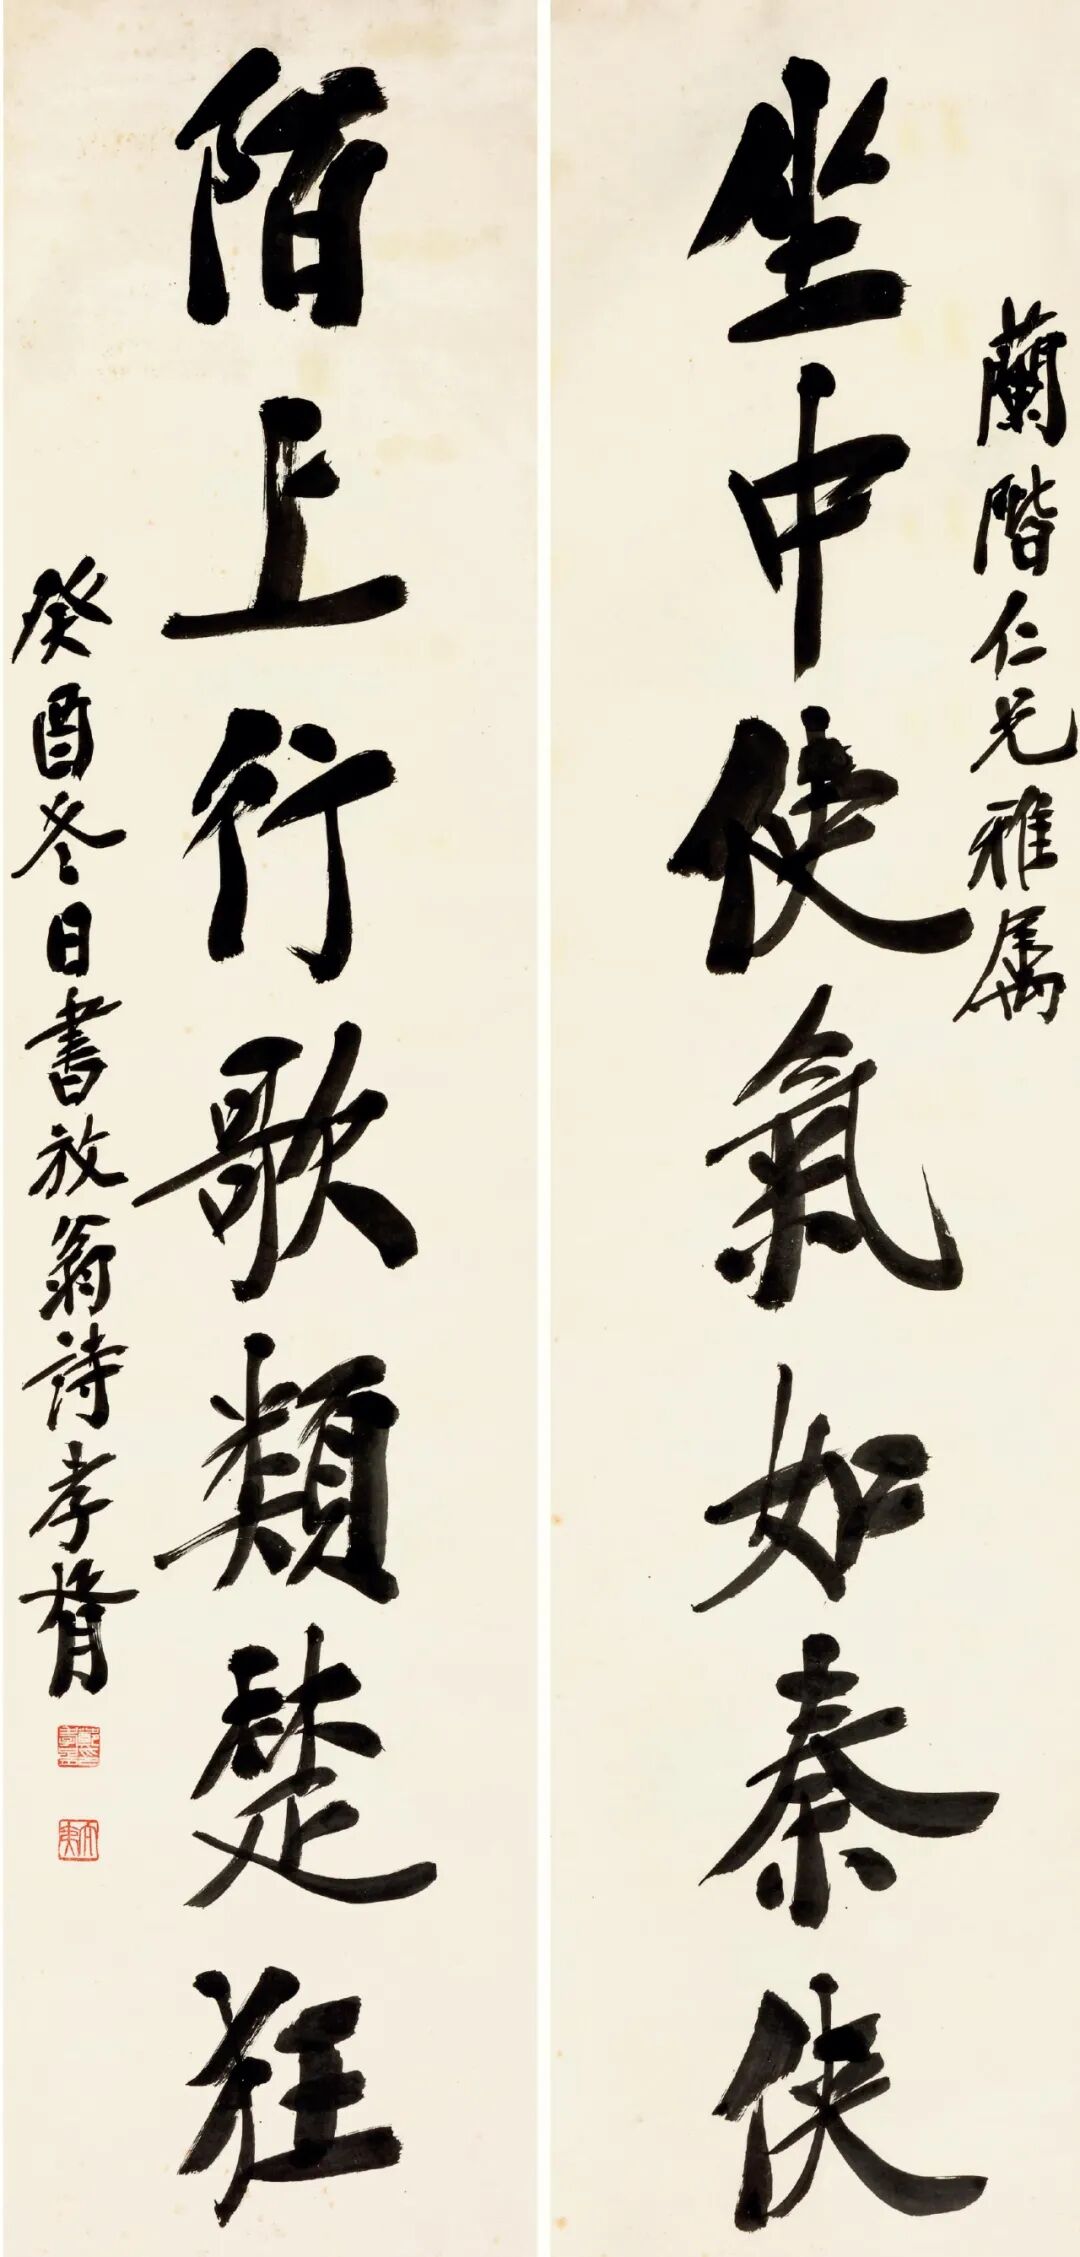 蘭階仁兄雅屬
坐中使氣如秦俠
陌上行歌類楚狂
癸酉冬日書放翁詩孝胥